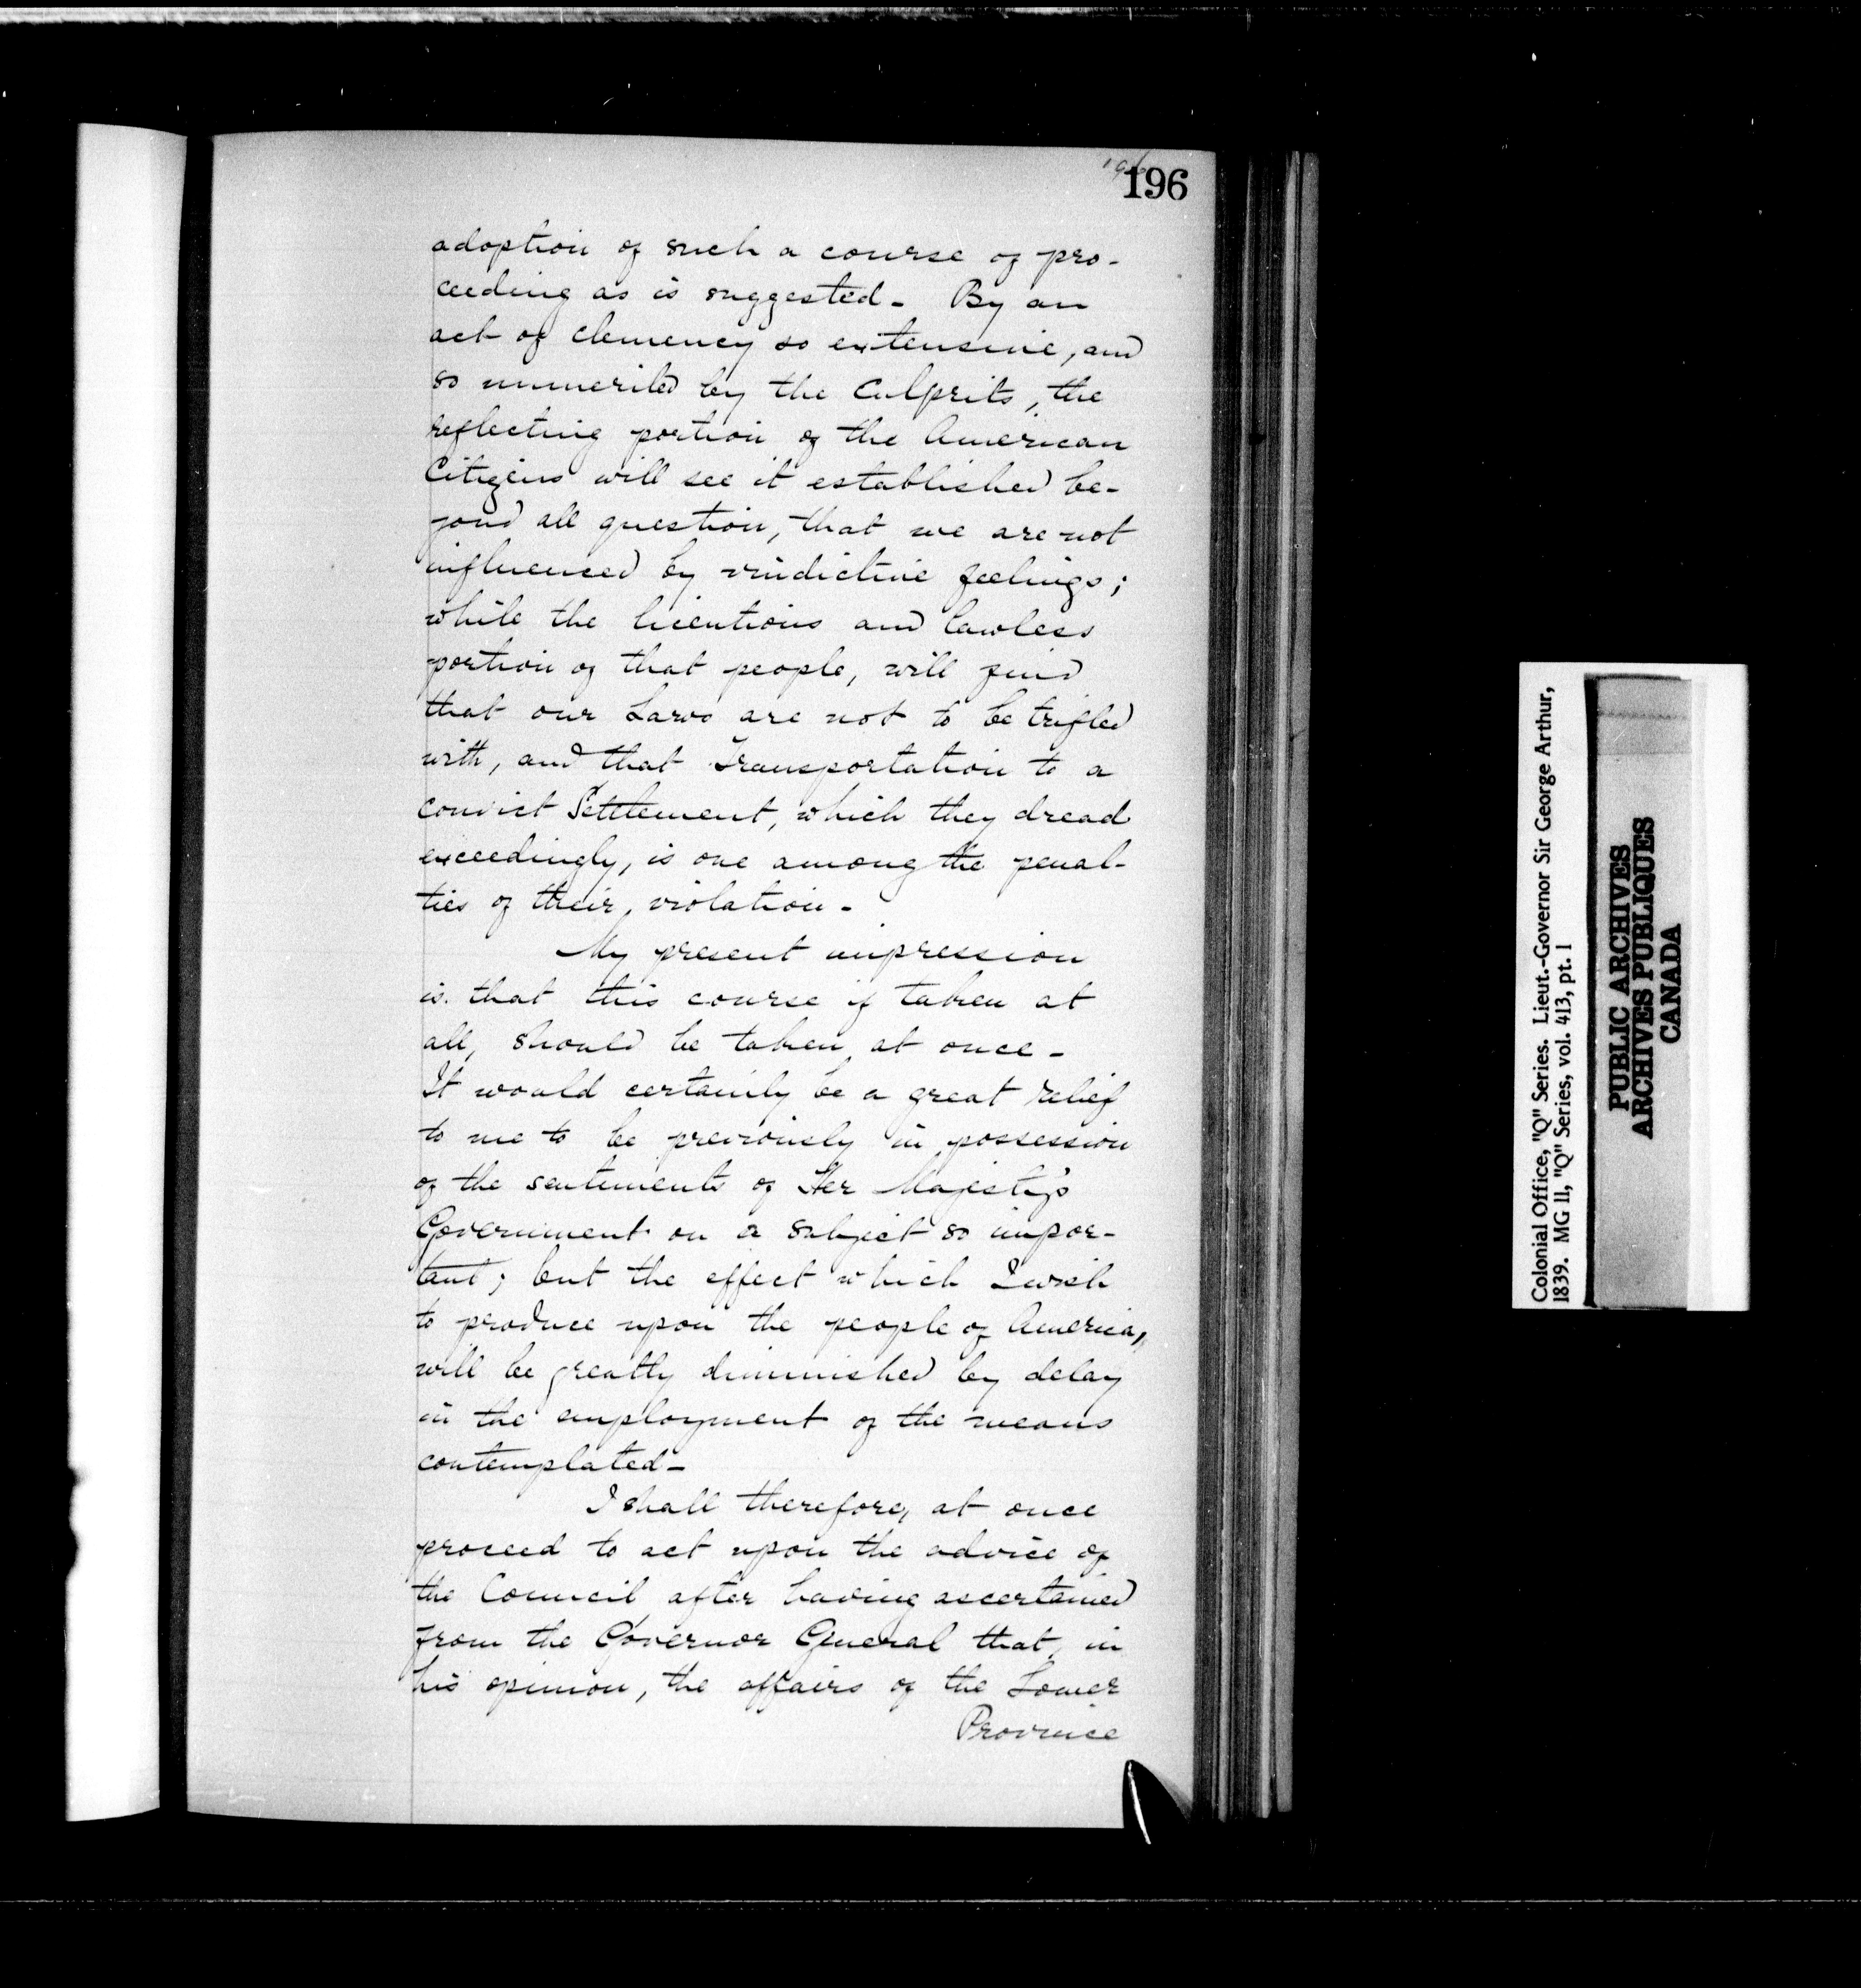 196
196
adoption of such a course of pro-
ceeding as is suggested- By an
act of clemency so extensive, and
so unmerited by the Culprits, the
reflecting portion of the American
Citizens will see it established be-
yond all question, that we are not
influenced by vindictive feelings;
while the licentious and lawless
portion of that people, will find
that our Laws are not to be trifled
with, and that Transportation to a
convict Settlement, which they dread
exceedingly, is one among the penal-
ties of their, violation-
My present impression
is that this course if taken at
all, should be taken at once-
It would certainly be a great relief
to me to be previously in possession
of the sentiments of Her Majesty's
Government on a subject so impor-
tant; but the effect which I wish
to produce upon the people of America,
will be greatly diminished by delay
in the employment of the means
contemplated-
I shall therefore, at once
proceed to act upon the advice of
the Council after having ascertained
from the Governor General that, in
his opinion, the affairs of the Lower
Province
Colonial Office, "Q" Series. Lieut.-Governor Sir George Arthur,
1839. MG 11, "Q" Series, vol. 413, pt. 1
PUBLIC ARCHIVES
ARCHIVES PUBLIQUES
CANADA